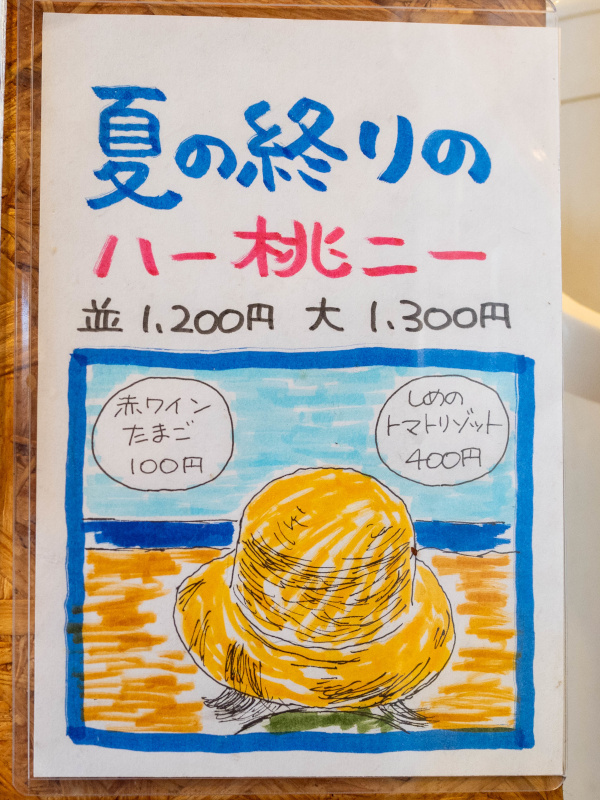 夏の終りの
ハー桃ニー
並 1,200円 大 1,300円
赤ワイン
たまご
100円
しめの
トマトリゾット
400円